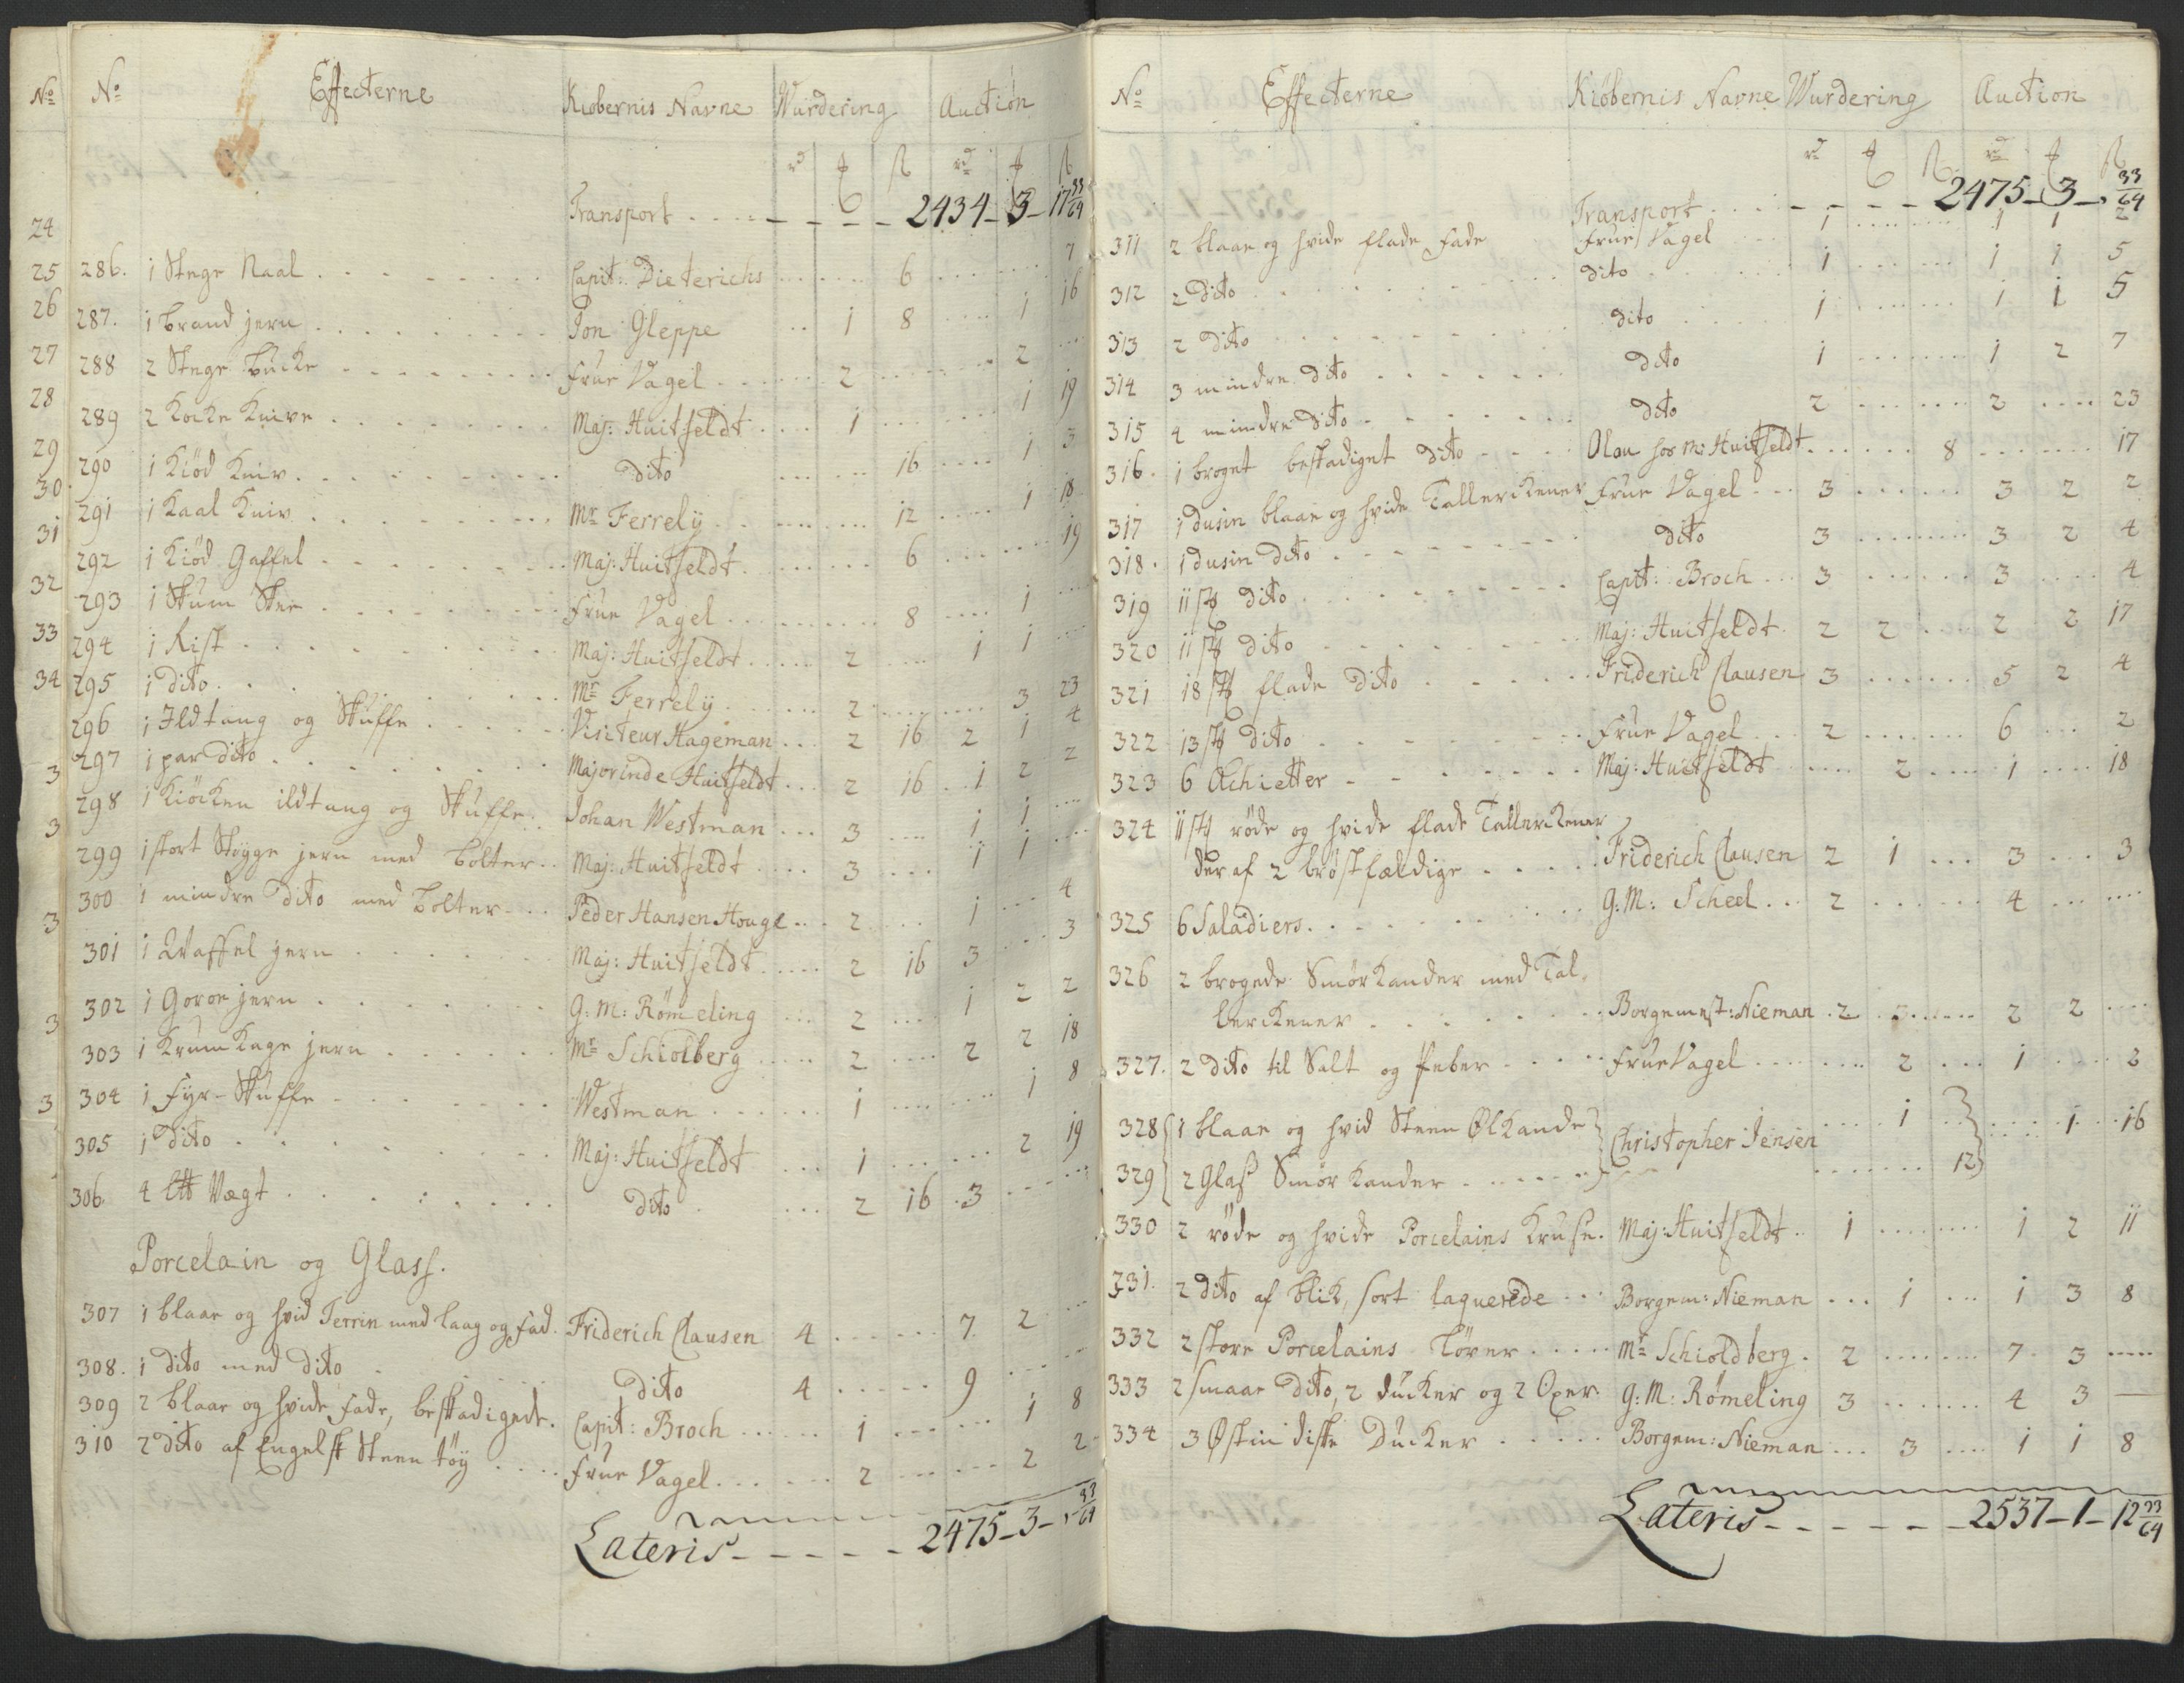 No
24
25
26
27
28
29
30
31
32
33
34
3
3
3
3
3
No Effecterne Kiøbernis Navne Wurdering Auction
rd ₰ ß rd ₰ ß
Transport . . . . - - - - 2434 - 3 - 17 33/64
286. 1 Stege Naal . . . Capit: Dieterichs . . . 6 . . . 7
287. 1 brand jern . . . Jon Gleppe . . 1 8 . . . 1 16
288 2 Stege bucke . . . Frue Vagel . . . 2 . . . 2 . . .
289 2 Kocke Knive . . . Maj: Huitfeldt . . . 1 . . . 1 19
290 1 Kiød Kniv . . . dito . . . 16 . . . 1 3
291 1 Kaal Kniv . . . Mr Ferrely . . . 12 . . . 1 18
292 1 Kiød Gaffel . . . Maj: Huitfeldt . . . 6 . . . 19
293 1 Skum Skee . . . Frue Vagel . . . 8 . . . 1 . . .
294 1 Rist . . . Maj: Huitfeldt . . . 2 . . . 1 1 . . .
295 1 dito . . . Mr Ferrely . . . 2 . . . 3 23
296 1 Ildtang og Skuffe . . . Visiteur Hageman . . . 2 16 2 1 4
297 1 par dito . . . Majorinde Huitfeldt . . . 2 16 . . 1 2 2
298 1 Kiøcken ildtang og Skuffe . . Johan Westman . . . 3 . . . 1 1 . . .
299 1 stort Støyge jern med bolter . . Maj: Huitfeldt . . . 3 . . . 1 1 . . .
300 1 mindre dito med bolter . . . Peder Hansen Hougl . . . 2 . . . 1 . . . 4
301 1 Waffel jern . . . Maj: Huitfeldt . . . 2 16 3 . . . 3
302 1 Goroe jern . . . G: M: Rømeling . . . 2 . . . 1 2 2
303 1 Krumkage jern . . . Mr Schiolberg . . . 2 . . . 2 2 18
304 1 Fyr-Skuffe . . . Westman . . . 1 . . . 1 8
305 1 dito . . . Maj: Huitfeldt . . . 1 . . . 2 19
306. 4 Vegt . . . dito . . . 2 16 . 3 . . .
Porcelain og Glass.
307 1 blaae og hvid Terrin med laag og fad. Friderich Clausen 4 . . . 7 2 . . .
308. 1 dito med dito . . . dito 4 . . . 9 . . .
309 2 blaae og hvide fade, beskadigede. Capit: Broch . . . 1 . . . 1 8
310 2 dito af Engelsk Steen tøy . . . Frue Vagel . . . 2 . . . 2 2
Lateris - - - - - 2475 - 3 - 33/64
No Effecterne Kiøbernis Navne Wurdering Auction
rd ₰ ß rd ₰ ß
Transport . . . - - - - 2475 - 3 - 33/64
311 2 blaae og hvide flade fade Frue Vagel . . . 1 . . . 1 1 2
312 2 dito . . . dito . . . 1 . . . 1 1 5
313 2 dito . . . dito . . . 1 . . . 1 1 5
314 3 mindre dito . . . dito 1 . . . 1 2 7
315 4 mindre dito . . . dito 2 . . . 2 . . . 23
316. 1 broget beskadiget dito . . . Olau hos M: Huitfeldt . . . 8 . . . 17
317 1 dusin blaae og hvide Tallerckener Frue Vagel . . . 3 . . . 3 2 2
318. 1 dusin dito . . . dito 3 . . . 3 2 4
319 11 st dito . . . Capit: Broch . . . 3 . . . 3 . . . 4
320 11 st dito . . . Maj: Huitfeldt 2 2 . . . 2 2 17
321 18 st flade dito . . . Friderich Clausen 3 . . . 5 2 4
322 13 st dito . . . Frue Vagel . . . 2 . . . 6 . . . 2
323 6 Achietter . . . Maj: Huitfeldt . . . 2 . . . 1 . . . 18
324 11 st røde og hvide flade Tallerckener
der af 2 brøstfældige . . . Friderich Clausen 2 1 . . . 3 . . . 3
325 6 Saladiers . . . G: M: Scheel . . . 2 . . . 4 . . .
326 2 brogede Smørkander med Tal-
lerckener . . . Borgemest: Nieman . 2 . . . 2 2 . . .
327. 2 dito til Salt og Peber . . . Frue Vagel . . . 2 . . . 1 . . . 2
328 1 blaae og hvid Steen Ølkande Christopher Jensen . . . 1 . . . 1 . . 16
329 2 Glass Smør kander . . . 12
330 2 røde og hvide Porcelains Kruse. Maj: Huitfeldt . . 1 . . . 1 2 11
331. 2 dito af blik, sort laquerede . . . Borgem: Nieman . . . 1 . . . 1 3 8
332 2 store Porcelains Løver . . . Mr Schioldberg . 2 . . . 7 3 . . .
333 2 smaae dito, 2 ducker og 2 Oxer G: M: Rømeling 3 . . . 4 3 —
334 3 Østindiske Ducker . . . Borgem: Nieman . . . 3 . . . 1 1 8
Lateris - - - - - - 2537 - 1 - 12 33/64